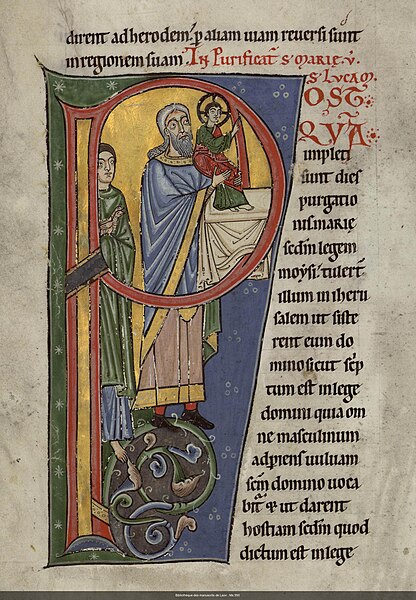 dirent ad herodem. p aliam uiam reuersi sunt
in regionem suam. In Purificat s. marie. v.
s. Lvcam.
POST
QVA
impleti
sunt dies
purgatio
nis marie
scdm legem
moysi. tulert
illum in iheru
salem ut siste
rent eum do
mino sicut scrip
tum est in lege
domini quia om
ne masculinum
adpiens uuluam
scm domino uoca
bit. & ut darent
hostiam scdm quod
dictum est in lege
Bibliothèque des manuscrits de Laon